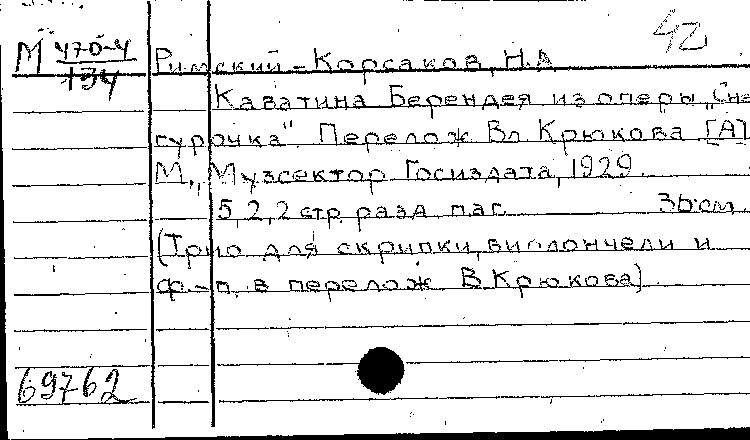 42
М 470-4 Римский-Корсаков, Н.А
134
Каватина Берендея из оперы „Сне
гурочка". Перелож Вл. Крюкова [А]
М., Музсектор Госиздата, 1929.
5, 2, 2 стр. разд. паг. 36 см.
(Трио для скрипки, виолончели и
ф-п. в перелож В. Крюкова)
69762